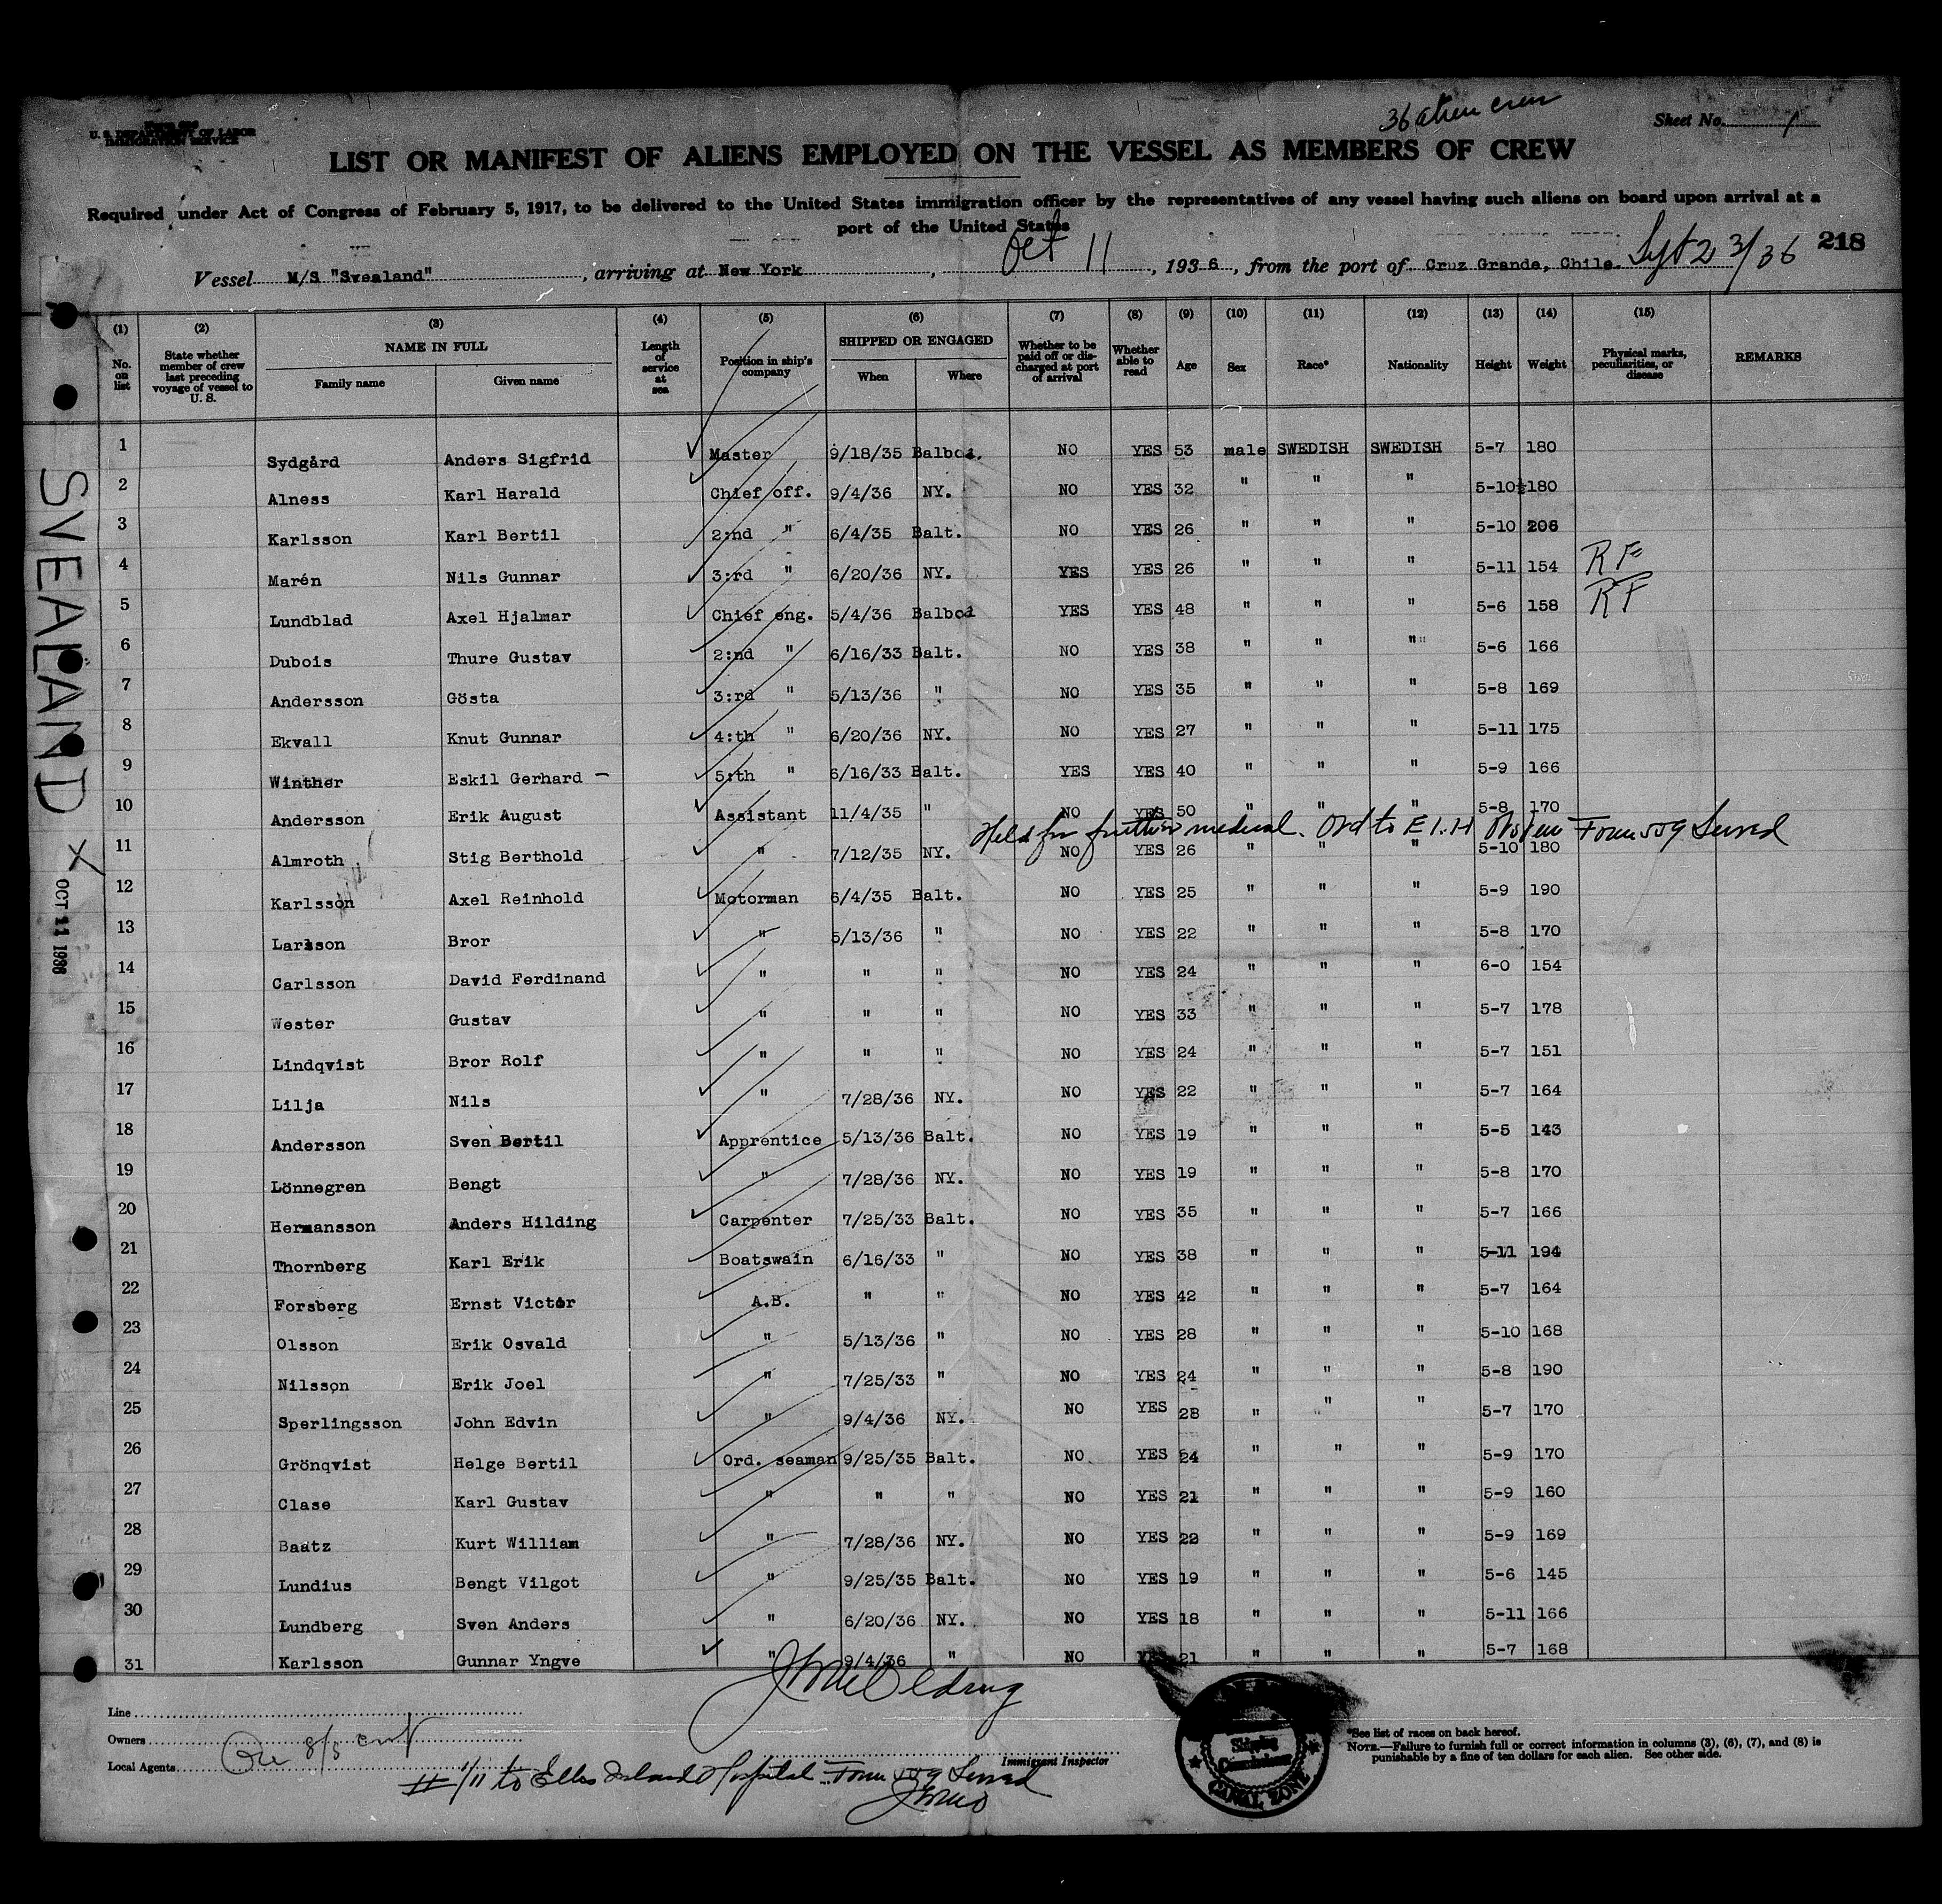 36 alien crew
Form 689
U. S. DEPARTMENT OF LABOR
IMMIGRATION SERVICE
Sheet No. 1
LIST OR MANIFEST OF ALIENS EMPLOYED ON THE VESSEL AS MEMBERS OF CREW
Required under Act of Congress of February 5, 1917, to be delivered to the United States immigration officer by the representatives of any vessel having such aliens on board upon arrival at a
port of the United States
218
Vessel M/S "Svealand", arriving at New York, Oct 11, 1936, from the port of Cruz Grande, Chile. Sept 23/36
(1) (2) (3) (4) (5) (6) (7) (8) (9) (10) (11) (12) (13) (14) (15)
No. on list State whether member of crew last preceding voyage of vessel to U. S. NAME IN FULL Family name Given name Length of service at sea Position in ship's company SHIPPED OR ENGAGED When Where Whether to be paid off or discharged at port of arrival Whether able to read Age Sex Race* Nationality Height Weight Physical marks, peculiarities, or disease REMARKS
1 Sydgård Anders Sigfrid Master 9/18/35 Balboa. NO YES 53 male SWEDISH SWEDISH 5-7 180
2 Alness Karl Harald Chief off. 9/4/36 NY. NO YES 32 " " " 5-10½ 180
3 Karlsson Karl Bertil 2:nd " 6/4/35 Balt. NO YES 26 " " " 5-10 206
4 Marén Nils Gunnar 3:rd " 6/20/36 NY. YES YES 26 " " " 5-11 154 RF
5 Lundblad Axel Hjalmar Chief eng. 5/4/36 Balboa YES YES 48 " " " 5-6 158 RF
6 Dubois Thure Gustav 2:nd " 6/16/33 Balt. NO YES 38 " " " 5-6 166
7 Andersson Gösta 3:rd " 5/13/36 " NO YES 35 " " " 5-8 169
8 Ekvall Knut Gunnar 4:th " 6/20/36 NY. NO YES 27 " " " 5-11 175
9 Winther Eskil Gerhard – 5:th " 6/16/33 Balt. YES YES 40 " " " 5-9 166
10 Andersson Erik August Assistant 11/4/35 " NO YES 50 " " " 5-8 170
Held for further medical. Ord to E I. H Form 559 Served
11 Almroth Stig Berthold " 7/12/35 NY. NO YES 26 " " " 5-10 180
12 Karlsson Axel Reinhold Motorman 6/4/35 Balt. NO YES 25 " " " 5-9 190
13 Larsson Bror " 5/13/36 " NO YES 22 " " " 5-8 170
14 Carlsson David Ferdinand " " " NO YES 24 " " " 6-0 154
15 Wester Gustav " " " NO YES 33 " " " 5-7 178
16 Lindqvist Bror Rolf " " " NO YES 24 " " " 5-7 151
17 Lilja Nils " 7/28/36 NY. NO YES 22 " " " 5-7 164
18 Andersson Sven Bertil Apprentice 5/13/36 Balt. NO YES 19 " " " 5-5 143
19 Lönnegren Bengt " 7/28/36 NY. NO YES 19 " " " 5-8 170
20 Hermansson Anders Hilding Carpenter 7/25/33 Balt. NO YES 35 " " " 5-7 166
21 Thornberg Karl Erik Boatswain 6/16/33 " NO YES 38 " " " 5-11 194
22 Forsberg Ernst Victor A.B. " " NO YES 42 " " " 5-7 164
23 Olsson Erik Osvald " 5/13/36 " NO YES 28 " " " 5-10 168
24 Nilsson Erik Joel " 7/25/33 " NO YES 24 " " " 5-8 190
25 Sperlingsson John Edvin " 9/4/36 NY. NO YES 28 " " " 5-7 170
26 Grönqvist Helge Bertil Ord. seaman 9/25/35 Balt. NO YES 24 " " " 5-9 170
27 Clase Karl Gustav " " " NO YES 21 " " " 5-9 160
28 Baatz Kurt William " 7/28/36 NY. NO YES 22 " " " 5-9 169
29 Lundius Bengt Vilgot " 9/25/35 Balt. NO YES 19 " " " 5-6 145
30 Lundberg Sven Anders " 6/20/36 NY. NO YES 18 " " " 5-11 166
31 Karlsson Gunnar Yngve " 9/4/36 " NO YES 21 " " " 5-7 168
Line
Owners
Local Agents
Immigrant Inspector
# 1/11 to Ellis Island Hospital Form 559 Served
*See list of races on back hereof.
NOTE.—Failure to furnish full or correct information in columns (3), (6), (7), and (8) is
punishable by a fine of ten dollars for each alien. See other side.
Shipping
Commissioner
CANAL ZONE
SVEALAND X
OCT 11 1936